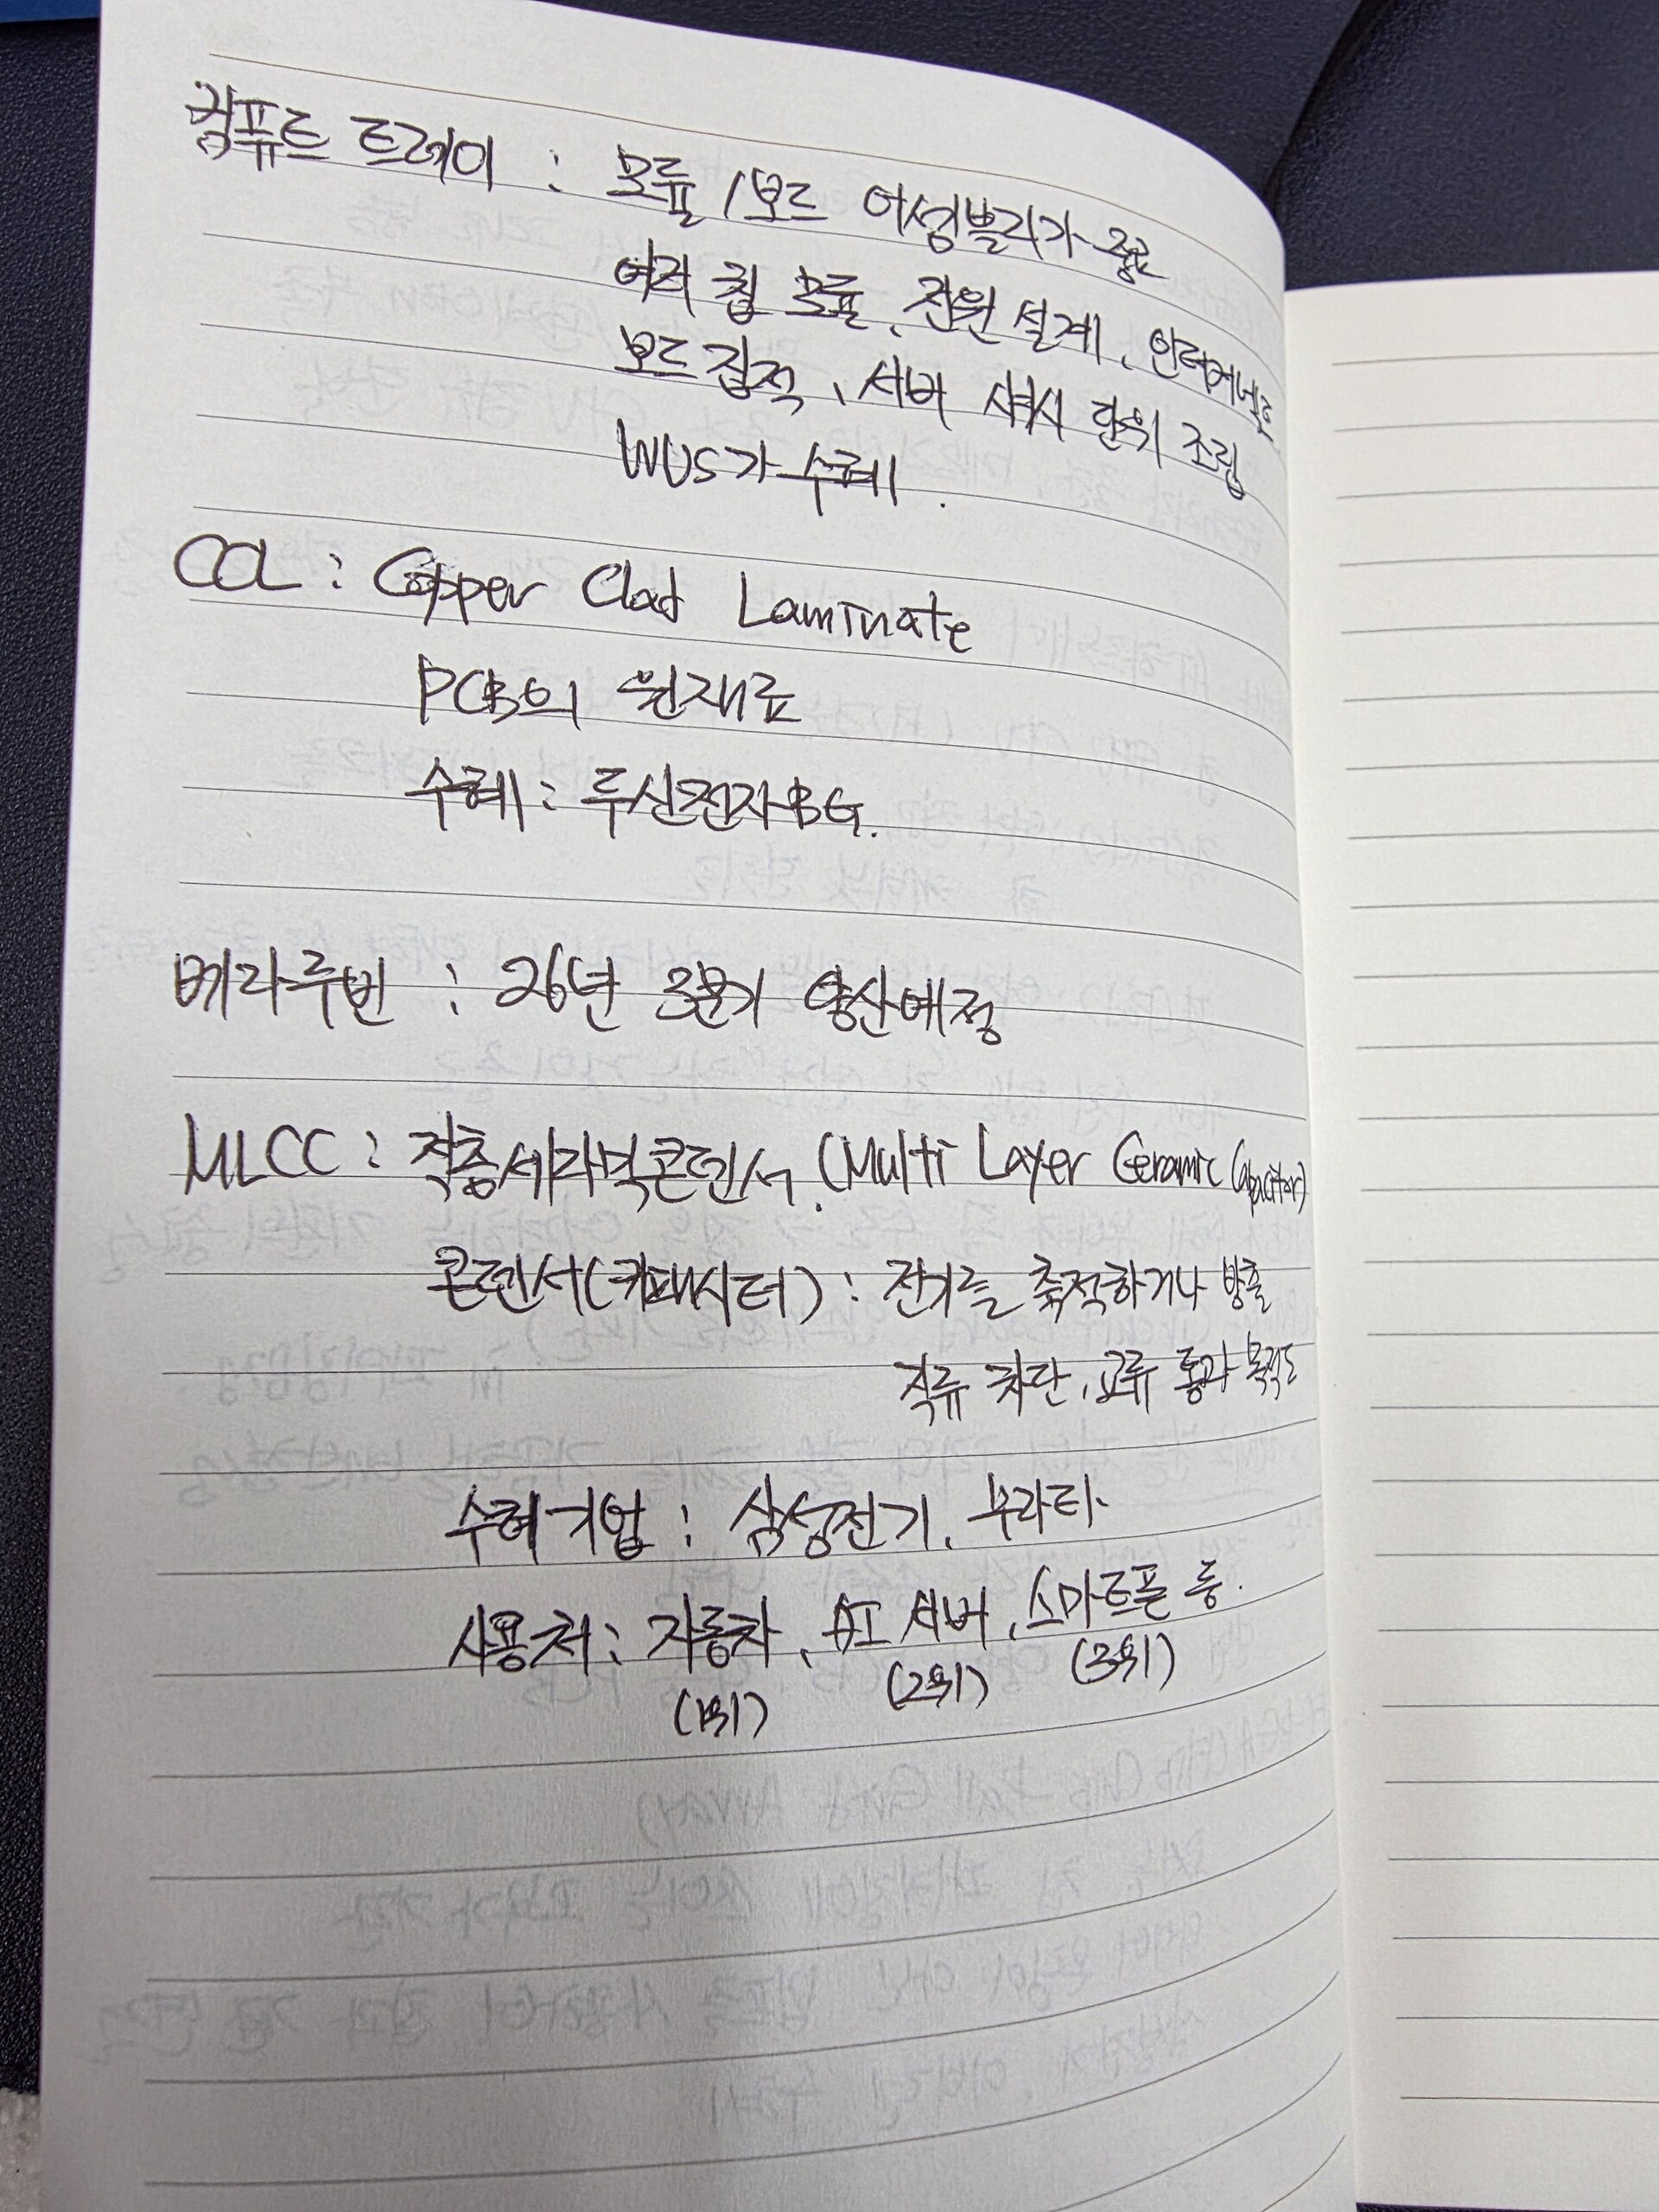 컴퓨트 트레이 : 모듈/보드 어셈블리가 중요
여러 칩 모듈, 전원 설계, 인터커넥트
보드 집적, 서버 섀시 단위 조립
WUS가 수혜.
CCL : Copper Clad Laminate
PCB의 원재료
수혜 : 두산전자BG.
베라루빈 : 26년 3분기 양산예정
MLCC : 적층세라믹콘덴서. (Multi Layer Ceramic Capacitor)
콘덴서(커패시터) : 전기를 축적하거나 방출
직류 차단, 교류 통과 목적도
수혜기업 : 삼성전기, 무라타
사용처 : 자동차, AI 서버, 스마트폰 등.
(1위) (2위) (3위)